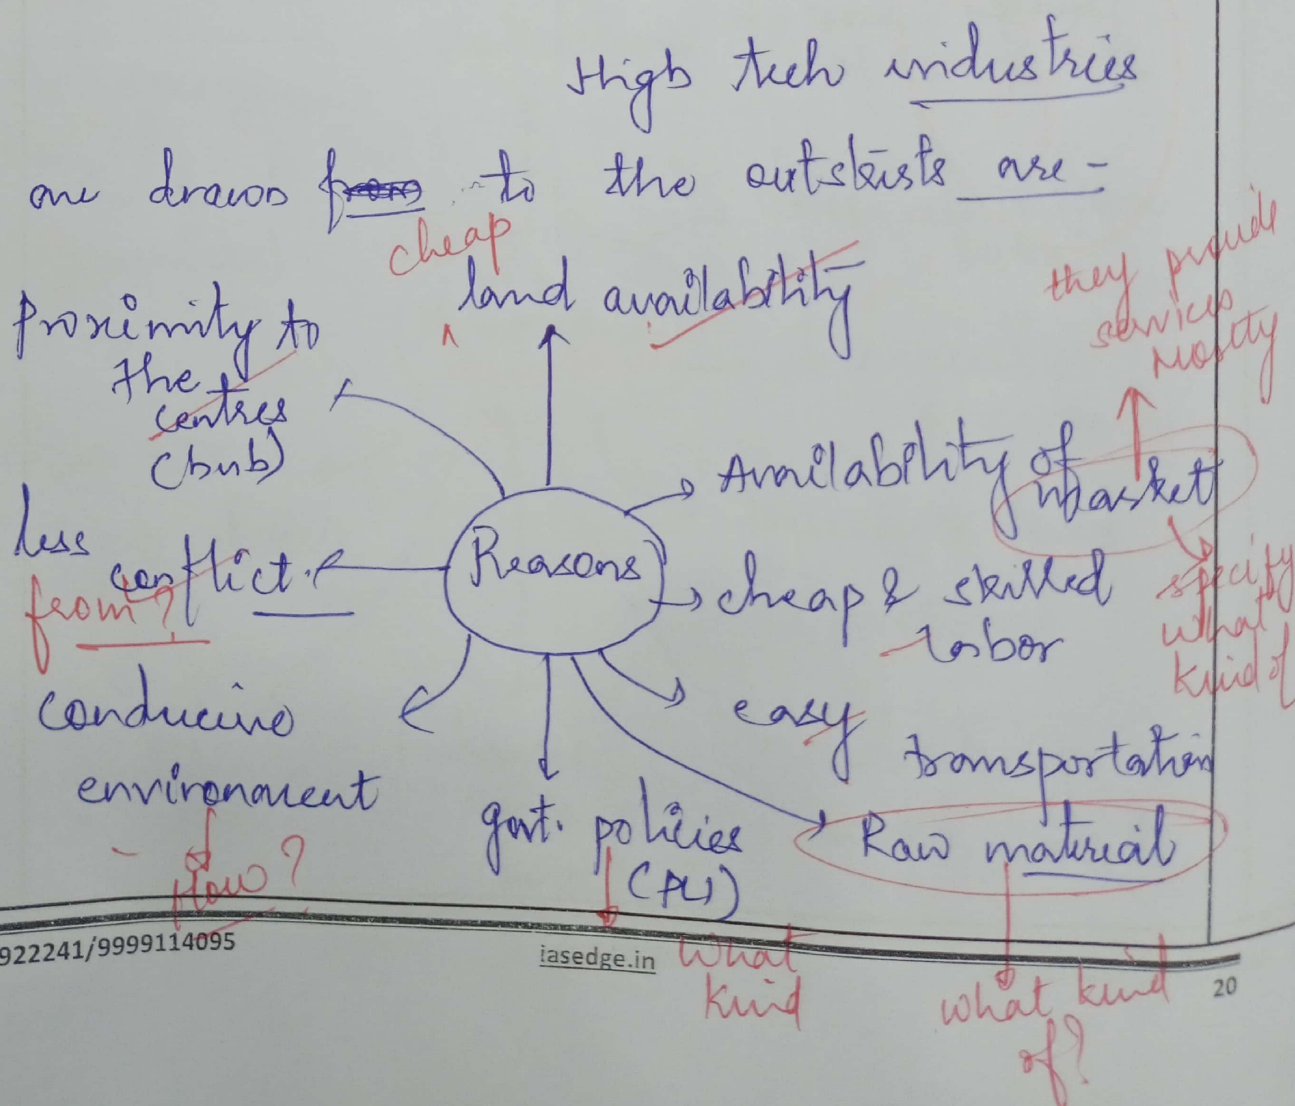 High tech industries
are drawn from to the outskirts are -
cheap
land availability
they provide
services
mostly
Proximity to
the
centres
(hub)
Availability of
market
specify
what
kind of
less
conflict.
from?
Reasons
cheap & skilled
labor
easy
transportation
conducive
environment
How?
govt. policies
(PLI)
what
kind
Raw material
what kind
of?
922241/9999114095
iasedge.in
20